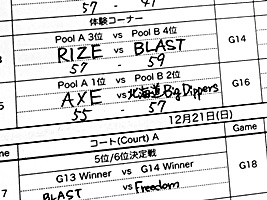 57 - 47
体験コーナー
Pool A 3位 vs Pool B 4位
G14
RIZE BLAST
57 - 59
Pool A 1位 vs Pool B 2位
G16
AXE 北海道Big Dippers
55 - 57
12月21日(日)
コート(Court) A
Game
5位/6位決定戦
G13 Winner vs G14 Winner
G18
BLAST vs Freedom